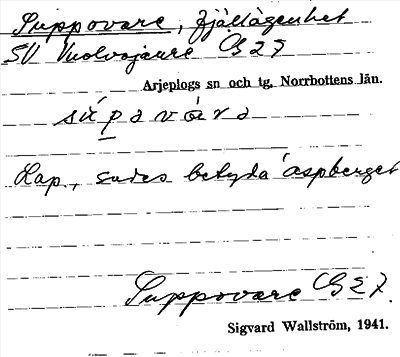 Suppovare, fjällägenhet
SV Vuolvojaure G 27
Arjeplogs sn och tg. Norrbottens län.
supavárə
Lap., sades betyda aspberget
Suppovare G 27.
Sigvard Wallström, 1941.